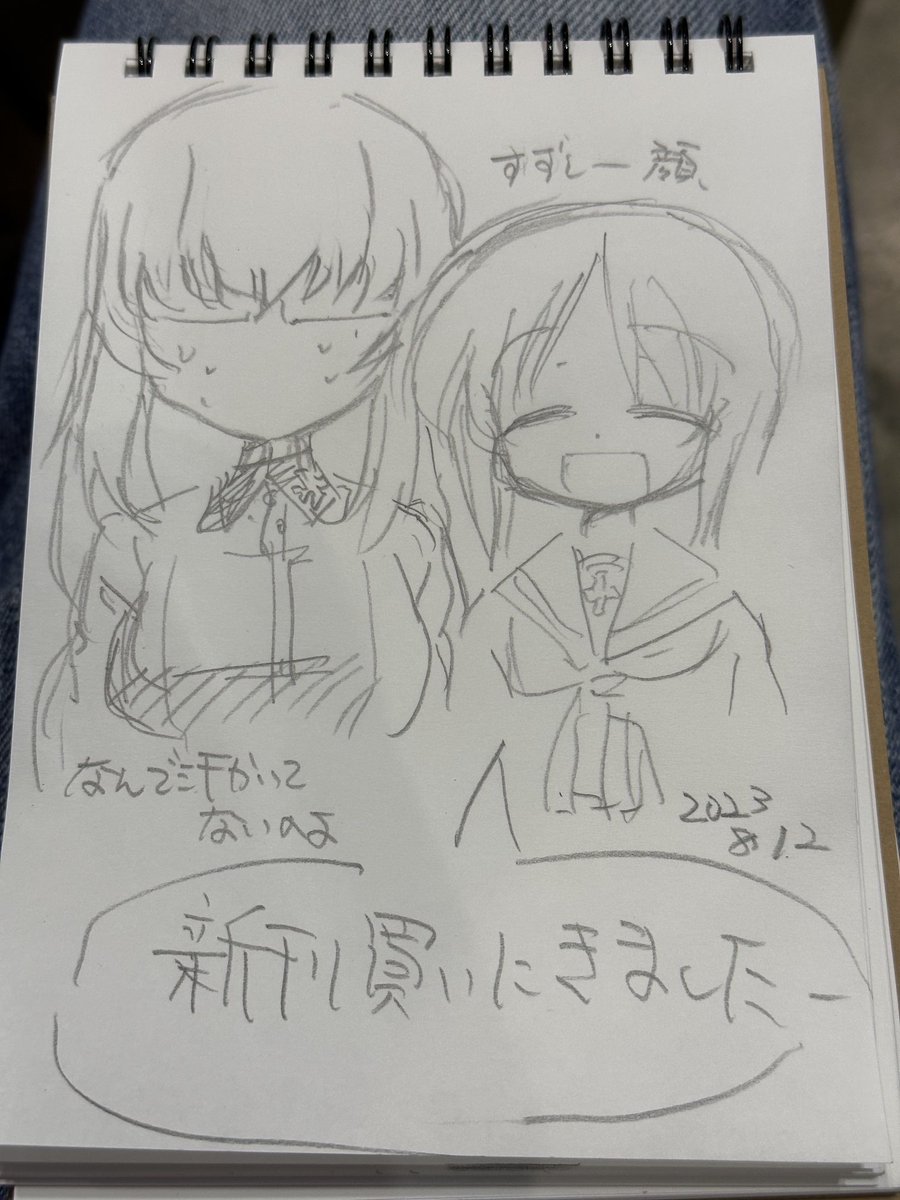 すずしー顔、
なんで汗かいて
ないのよ
2023
8.12
新刊買いにきましたー